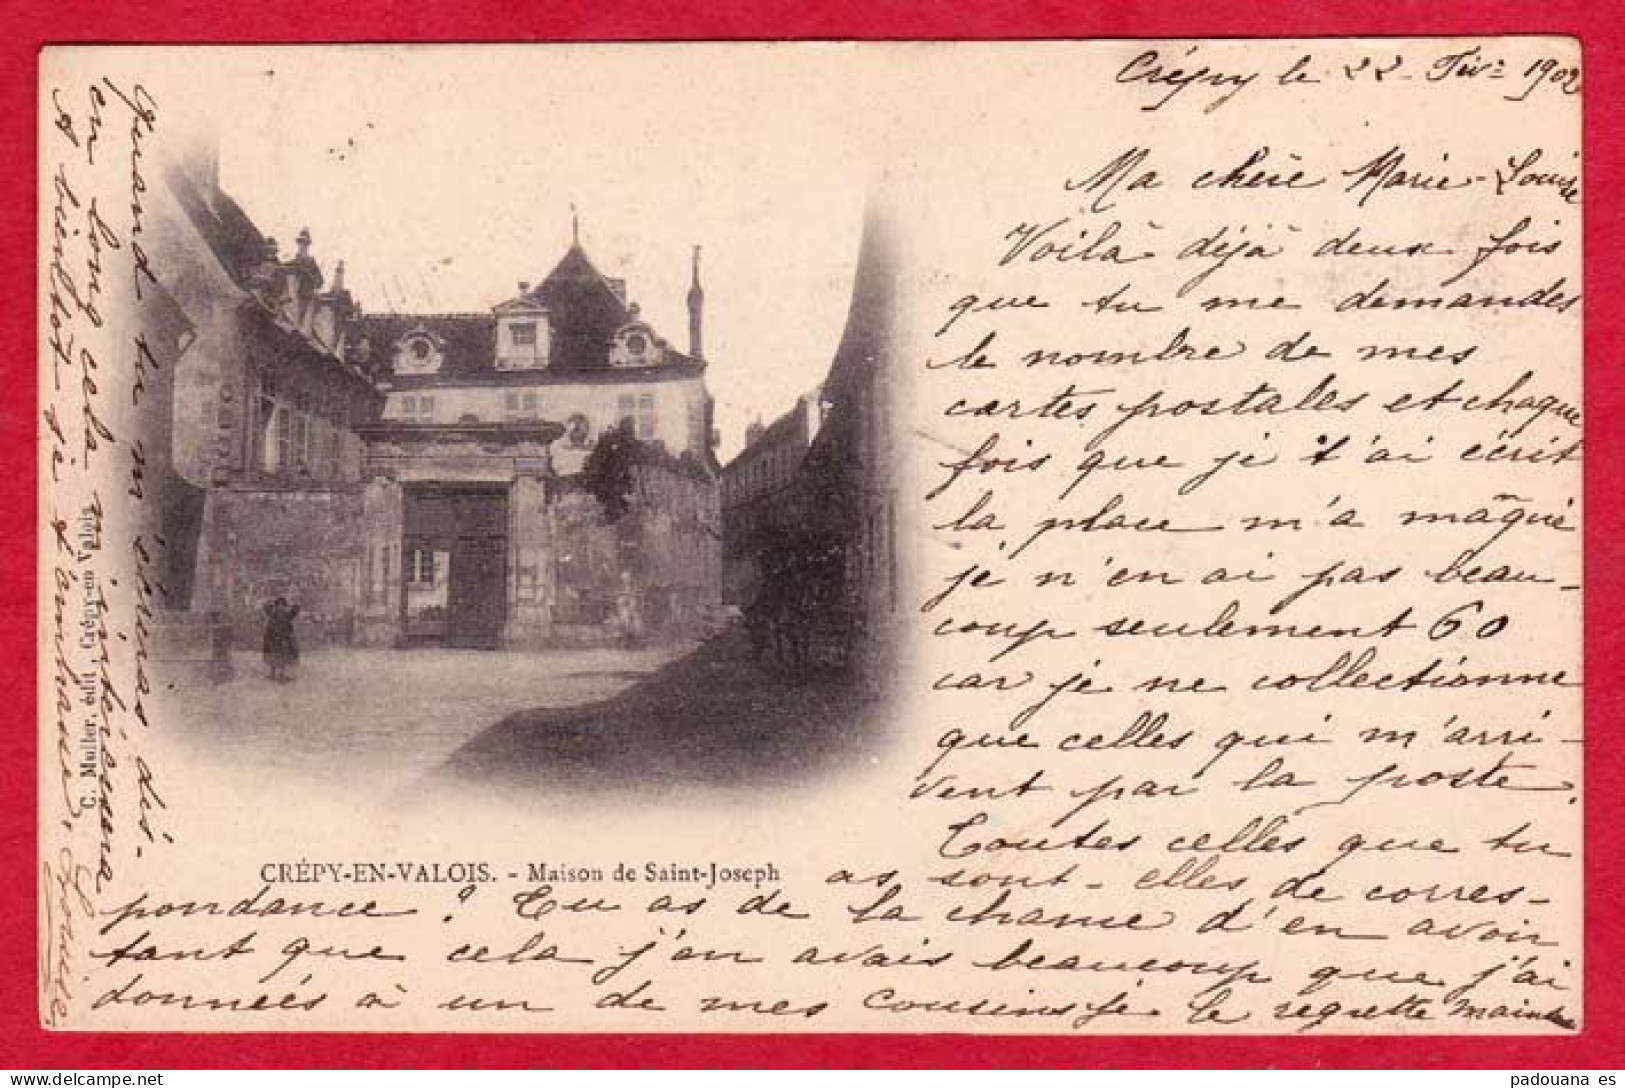 Crépy le 22 Fév. 1902
Ma chère Marie-Louise
Voilà déjà deux fois
que tu me demandes
le nombre de mes
cartes postales et chaque
fois que je t'ai écrit
la place m'a mâqué
je n'en ai pas beau-
coup seulement 60
car je ne collectionne
que celles qui m'arri-
vent par la poste.
Toutes celles que tu
as sont-elles de corres-
pondance ? Tu as de la chance d'en avoir
tant que cela j'en avais beaucoup que j'ai
données à un de mes cousins je le regrette
quand tu m'écriras dis-
en long cela m'intéressera
A bientôt je t'embrasse, Louise
CRÉPY-EN-VALOIS. - Maison de Saint-Joseph
C. Muller, édit, Crépy-en Valois
padouana es